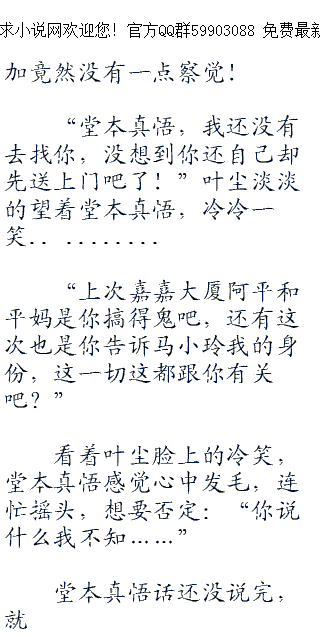 求小说网欢迎您！官方QQ群59903088 免费最新
加竟然没有一点察觉！
“堂本真悟，我还没有
去找你，没想到你还自己却
先送上门吧了！”叶尘淡淡
的望着堂本真悟，冷冷一
笑.. ........
“上次嘉嘉大厦阿平和
平妈是你搞得鬼吧，还有这
次也是你告诉马小玲我的身
份，这一切这都跟你有关
吧？”
看着叶尘脸上的冷笑，
堂本真悟感觉心中发毛，连
忙摇头，想要否定：“你说
什么我不知……”
堂本真悟话还没说完，
就